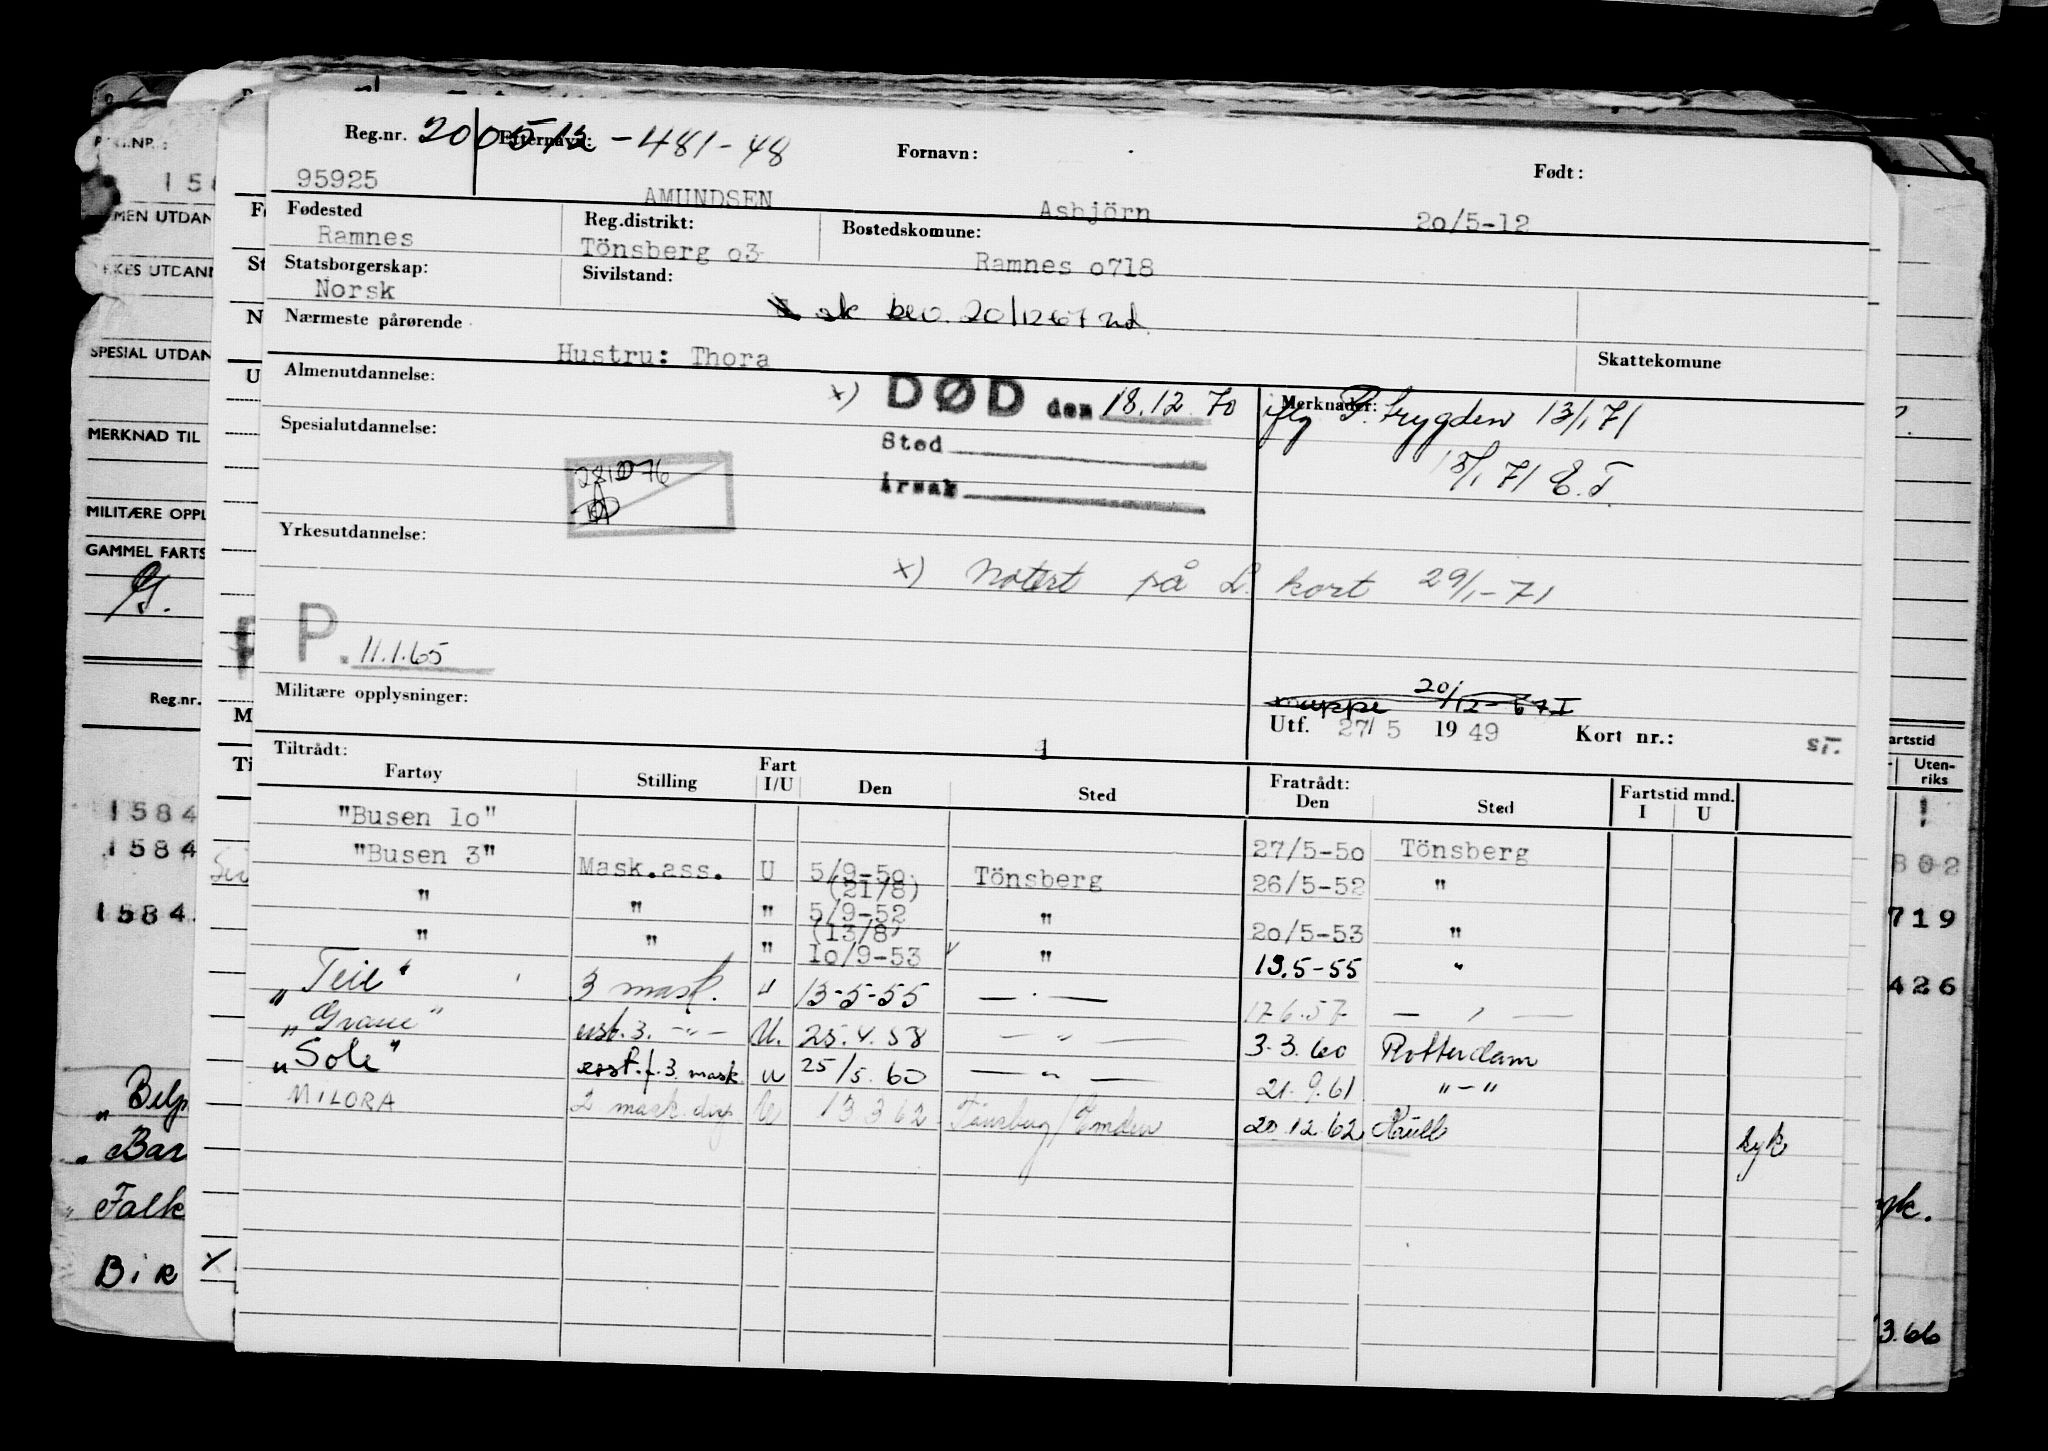 Reg.nr. 200512-481-48 Efternavn: Fornavn: Født:
95925 AMUNDSEN Asbjörn 20/5-12
Fødested Reg.distrikt: Bostedskomune:
Ramnes Tönsberg o3 Ramnes o718
Statsborgerskap: Sivilstand:
Norsk
sk bev. 20/12 67
Nærmeste pårørende
Hustru: Thora Skattekomune
Almenutdannelse: x) DØD den 18.12.70 Merknader: iflg P. trygden 13/1 71
Spesialutdannelse: Sted 15/1 71 E.T
281076 Årsak
Yrkesutdannelse:
x) Notert på L. kort 29/1-71
P. 11.1.65
Militære opplysninger: mappe 20/12-67
Utf. 27/5 1949 Kort nr.: ST.
Tiltrådt: 1
Fartøy Stilling Fart I/U Den Sted Fratrådt: Den Sted Fartstid mnd. I U
"Busen 1o" 27/5-5o Tönsberg
"Busen 3" Mask.ass. U 5/9-5o. Tönsberg 26/5-52 "
(21/8)
" " " 5/9-52 " 2o/5-53 "
(13/8)
" " " 1o/9-53 " 13.5-55 "
"Teie" 3 mask. u 13-5-55 — . — 17.6.57 — , —
"Grane" ust. 3. -"- U. 25.4.58 — " — 3.3.60 Rotterdam
"Sole" asst. f. 3. mask u 25/5.60 — " — 21.9.61 "-"
MILORA 2 mask. disp U 13 3 62 Tönsberg/Emden 20.12.62 Hull syk
REG.NR.:
ALMEN UTDAN
YRKES UTDAN
SPESIAL UTDAN
MERKNAD TIL
MILITÆRE OPPL
GAMMEL FARTS
Reg.nr.
1584
1584
1584
Belp
Bar
Falk
Bik
artstid
Uten-
riks
802
719
426
yk.
3.66